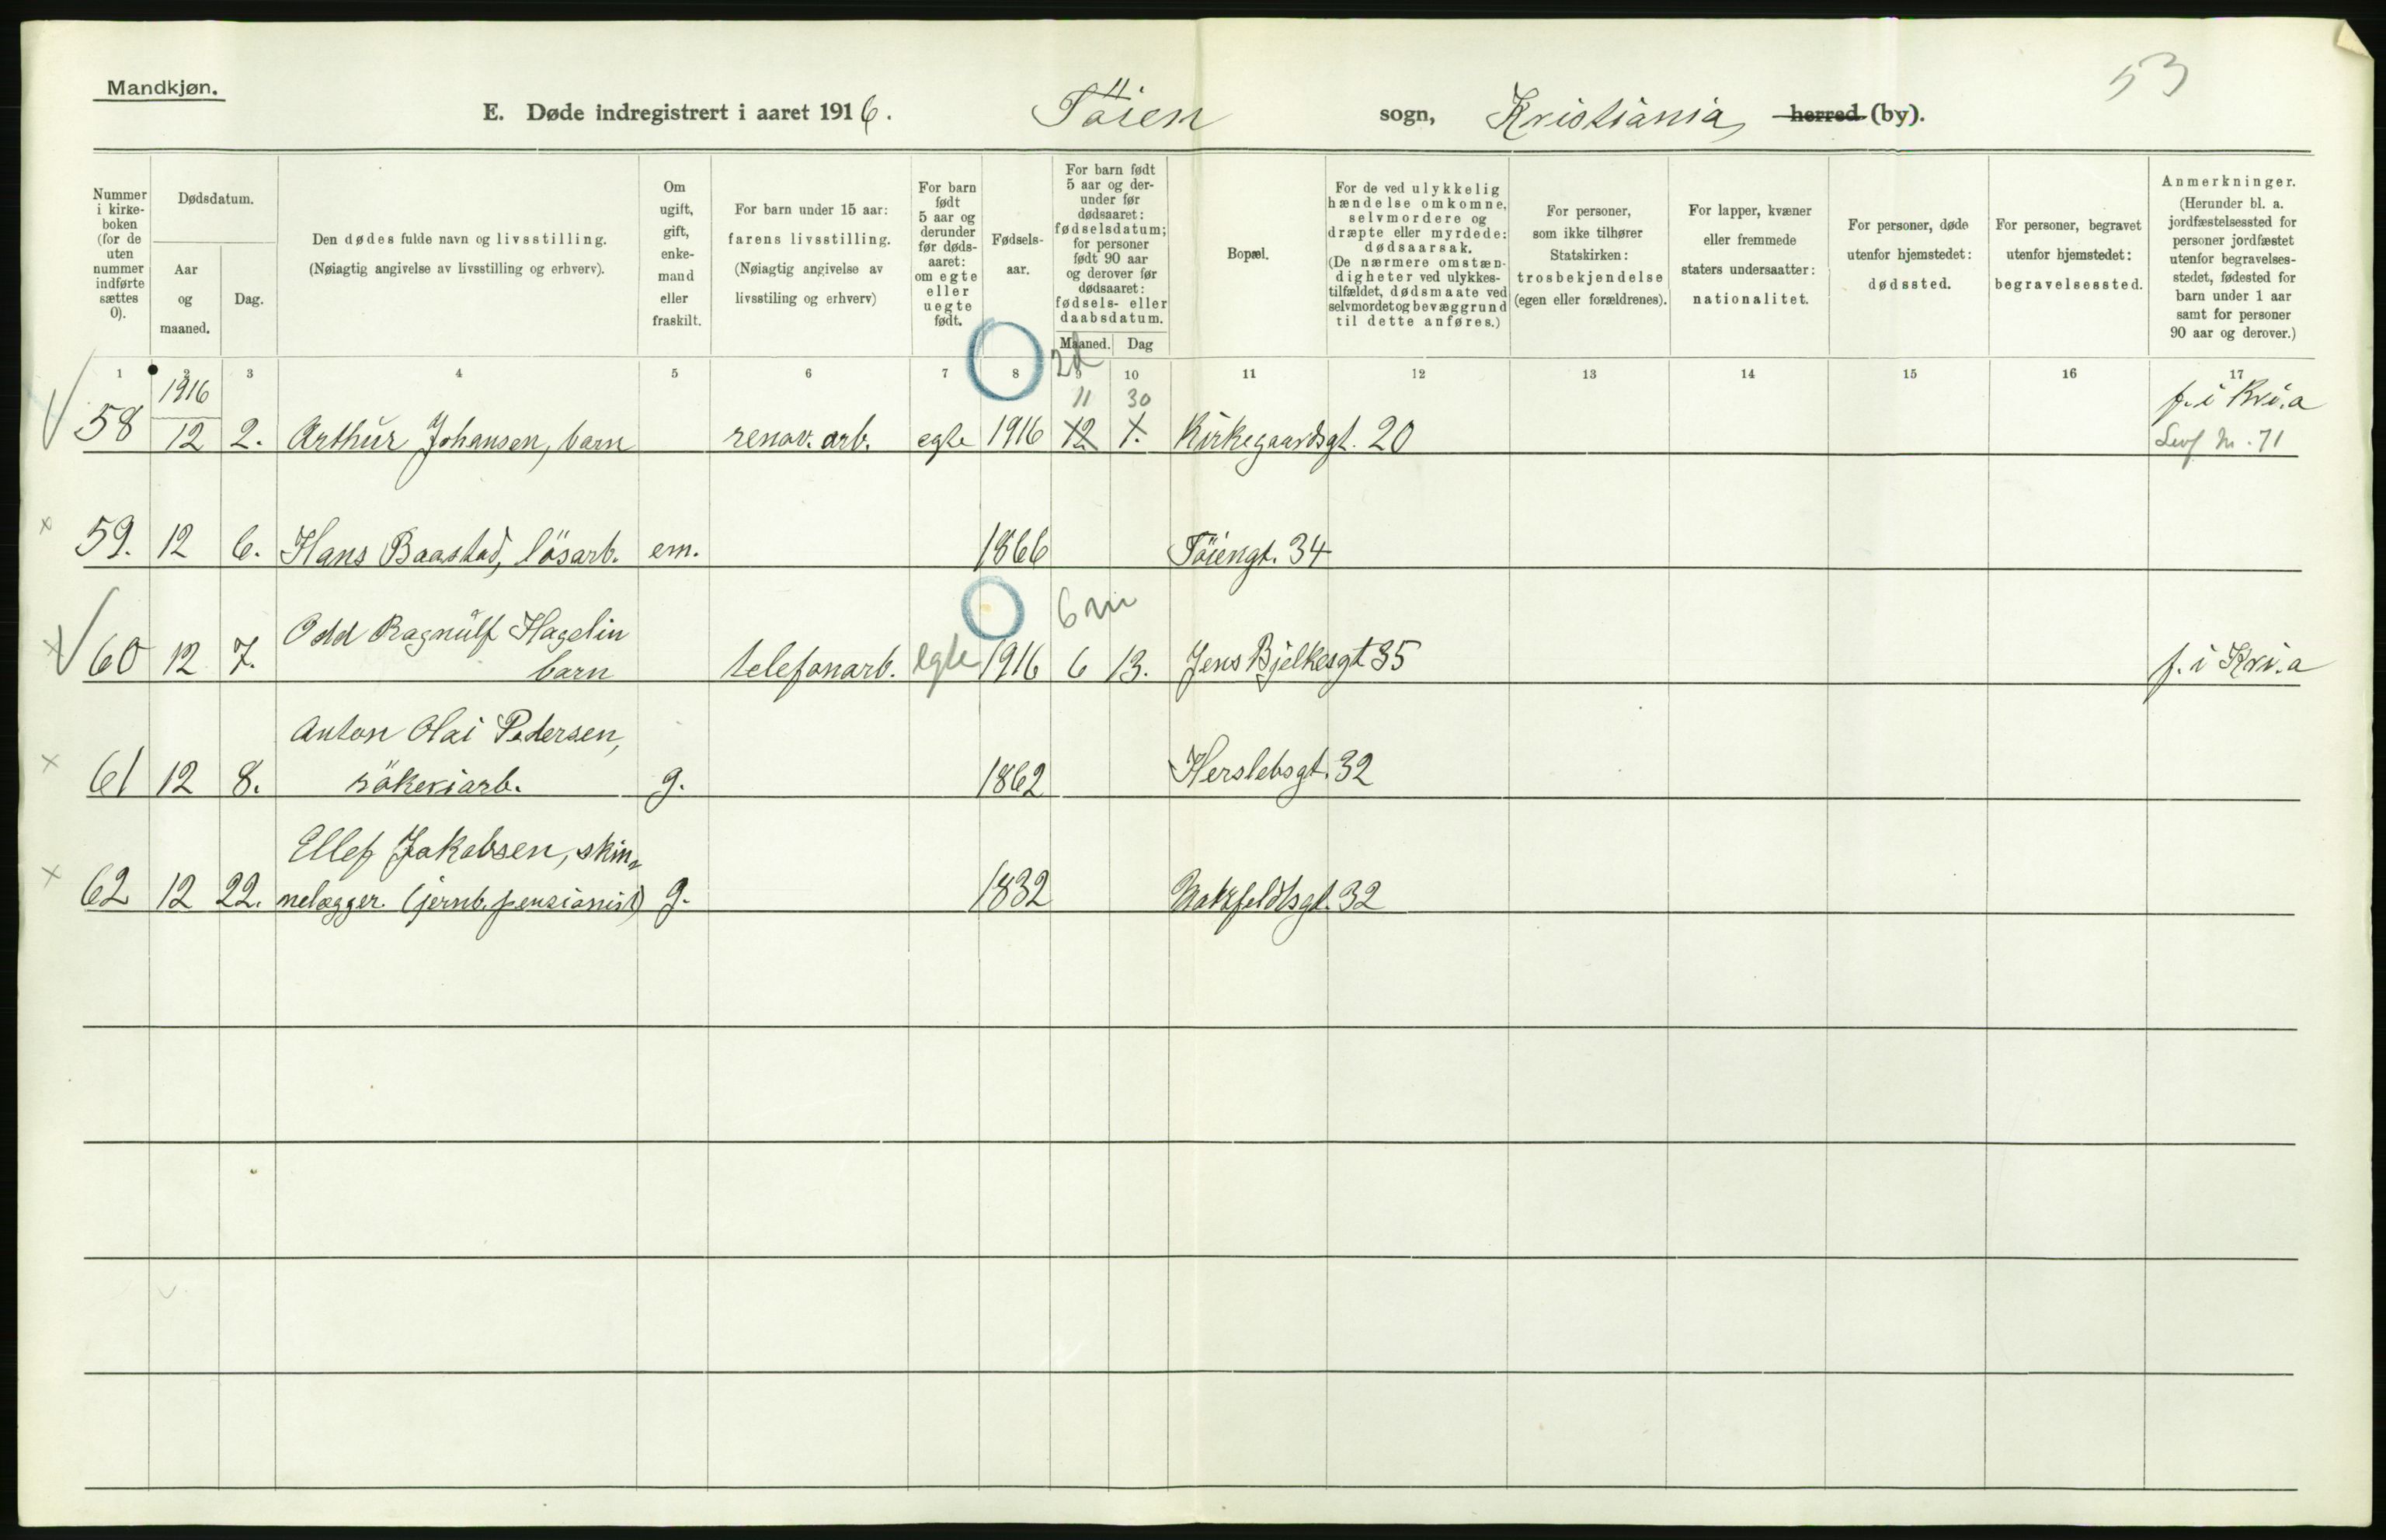 53
Mandkjøn.
E. Døde indregistrert i aaret 1916. Töien sogn, Kristiania herred (by).
Nummer i kirke- boken (for de uten nummer indførte sættes 0).
Dødsdatum.
Aar og maaned.
Dag.
Den dødes fulde navn og livsstilling.
(Nøiagtig angivelse av livsstilling og erhverv).
Om ugift, gift, enke- mand eller fraskilt.
For barn under 15 aar: farens livsstilling.
(Nøiagtig angivelse av livsstiling og erhverv)
For barn født 5 aar og derunder før døds- aaret: om egte eller uegte født.
Fødsels- aar.
For barn født 5 aar og der- under før dødsaaret: fødselsdatum; for personer født 90 aar og derover før dødsaaret: fødsels- eller daabsdatum.
Maaned. Dag
Bopæl.
For de ved ulykkelig hændelse omkomne, selvmordere og dræpte eller myrdede: dødsaarsak.
(De nærmere omstæn- digheter ved ulykkes- tilfældet, dødsmaate ved selvmordet og bevæggrund til dette anføres.)
For personer, som ikke tilhører Statskirken: trosbekjendelse (egen eller forældrenes).
For lapper, kvæner eller fremmede staters undersaatter: nationalitet.
For personer, døde utenfor hjemstedet: dødssted.
For personer, begravet utenfor hjemstedet: begravelsessted.
Anmerkninger.
(Herunder bl. a. jordfæstelsessted for personer jordfæstet utenfor begravelses- stedet, fødested for barn under 1 aar samt for personer 90 aar og derover.)
1 2 3 4 5 6 7 8 9 10 11 12 13 14 15 16 17
1916 2d 11 30 f. i Kri.a
58 12 2. Arthur Johansen, barn renov. arb. egte 1916 12 1. Kirkegaardsgt. 20 Levf Nr. 71
59. 12 6. Hans Baastad, lösarb. em. 1866 Töiengt. 34
Odd Ragnulf Hagelin 6 m
60 12 7. barn telefonarb. egte 1916 6 13. Jens Bjelkesgt 35 f. i Kri.a
Anton Olai Pedersen,
61 12 8. rökeriarb. g. 1862 Herslebsgt. 32
Ellef Jakobsen, skin-
62 12 22. nelægger. (jernb. pensionist) g. 1832 32